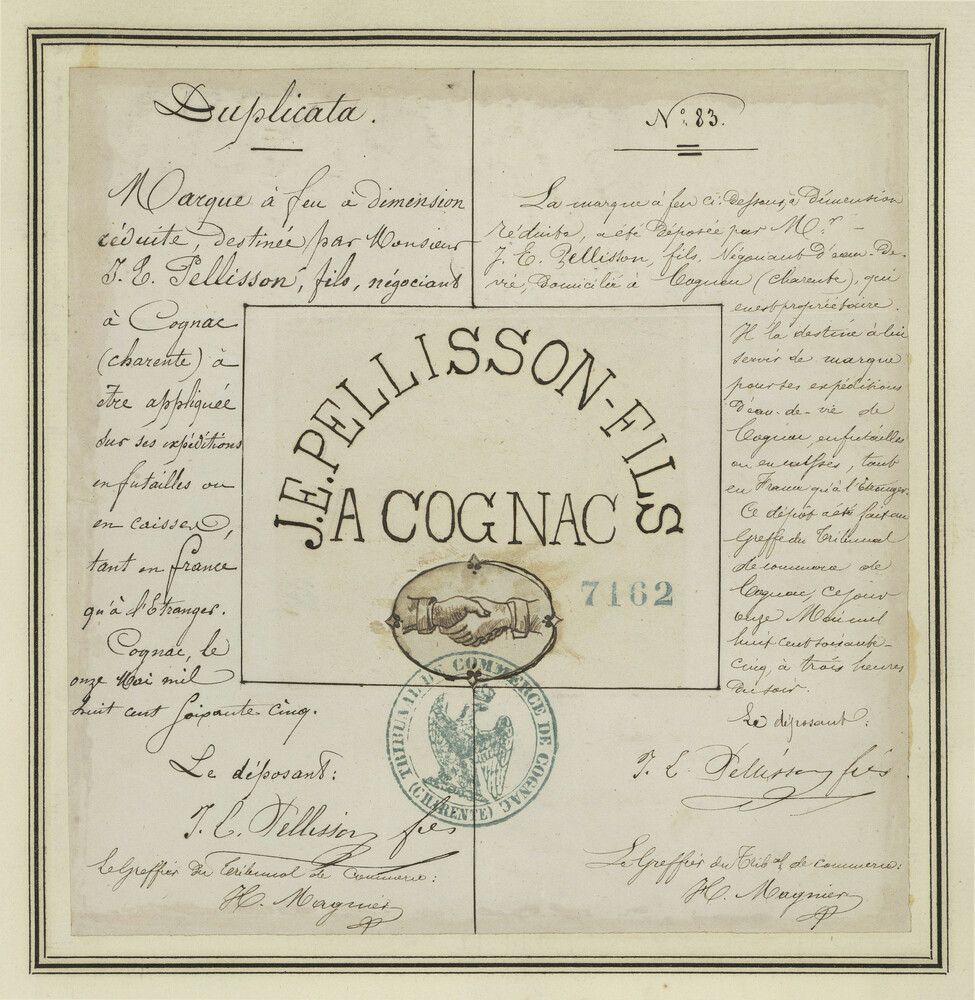 Duplicata.
Marque à feu à dimension
réduite, destinée par Monsieur
J. E. Pellisson, fils, négociant
à Cognac
(charente) à
être appliquée
sur ses expéditions
en futailles ou
en caisses,
tant en france
qu'à l'Etranger.
Cognac, le
onze Mai mil
huit cent soixante cinq.
Le déposant:
J. E. Pellisson fils
Le Greffier du Tribunal de Commerce:
H. Magnier
J.E. PELLISSON-FILS
A COGNAC
7162
TRIBUNAL DE COMMERCE DE COGNAC
(CHARENTE)
N° 83.
La marque à feu ci-dessous, à Dimension
réduite, a été Déposée par Mr. -
J. E. Pellisson, fils, Négociant D'eau-De-
vie, Domicilié à Cognac (Charente), qui
en est propriétaire.
Il la destine à lui
servir de marque
pour ses expéditions
D'eau-de-vie de
Cognac, en futailles
ou en caisses, tant
en France qu'à l'Etranger.
Ce dépôt a été fait au
Greffe du Tribunal
de commerce de
Cognac, ce jour
onze Mai mil
huit cent soixante-
cinq, à trois heures
Du soir.
Le déposant:
J. E. Pellisson fils
Le Greffier du Tribal de commerce:
H. Magnier